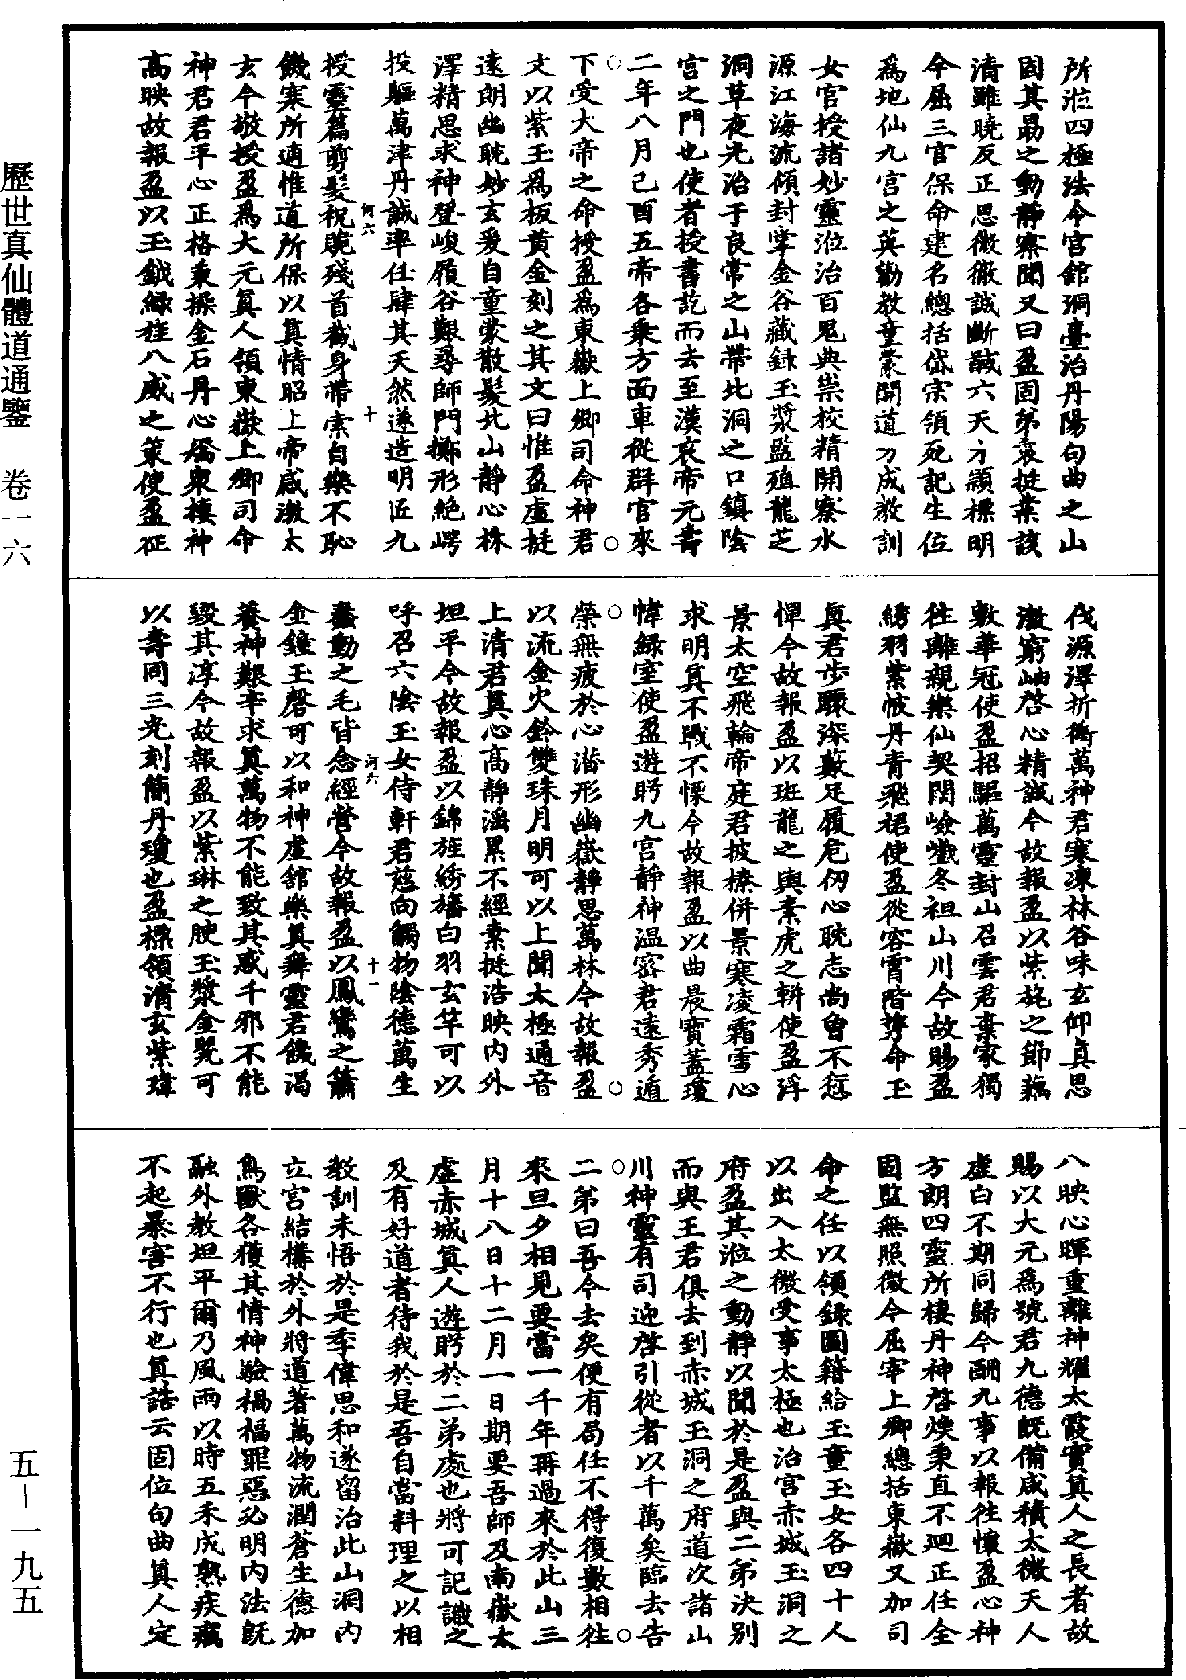 所涖四極法令宮館洞臺治丹陽句曲之山
固其勗之動靜察聞又曰盈固弟衷挺業該
清雖曉反正思微徹誠斷馘六天才顯標明
今屈三官保命建名總括岱宗領死記生位
為地仙九宮之英勸教童蒙開道方成教訓
女官授諸妙靈涖治百鬼典崇校精開察水
源江海流傾封掌金谷藏錄玉漿監殖龍芝
洞草夜光治于良常之山帶北洞之口鎮陰
宮之門也使者授書訖而去至漢哀帝元壽
二年八月己酉五帝各乘方面車從群官來
下受大帝之命授盈為東嶽上卿司命神君
文以紫玉為板黃金刻之其文曰惟盈虛挺
遠朗幽眈妙玄爰自童蒙散髮北山靜心株
澤精思求神登峻履谷艱尋師門擲形絕崿
投軀萬津丹誠率任肆其天然遂造明匠九
授靈篇剪髮祝誓殘首截身帶索自樂不恥
饑寒所適惟道所保以真情昭上帝感激太
玄今敬授盈為大元真人領東嶽上卿司命
神君君平心正格秉操金石丹心矯眾棲神
高映故報盈以玉鉞綠旌八威之策使盈征
伐源澤折衝萬神君寒凍林谷味玄仰真思
激窮岫啓心精誠今故報盈以紫旄之節藕
敷華冠使盈招驅萬靈封山召雲君棄家獨
往離親樂仙契闊嶮巇冬袒山川今故賜盈
繡羽紫帔丹青飛裙使盈從容霄階尊命玉
真君步驟深藪足履危仞心眈志尚曾不怠
憚今故報盈以班龍之輿素虎之軿使盈浮
景太空飛輪帝庭君披榛併景寒凌霜雪心
求明真不戰不慄今故報盈以曲晨寶蓋瓊
幃綠室使盈遊眄九宮靜神温密君遠秀遁
榮無疲於心潛形幽嶽靜思萬林今故報盈
以流金火鈴雙珠月明可以上聞太極通音
上清君真心高靜滛累不經素挺浩映內外
坦平今故報盈以錦旌繡旛白羽玄竿可以
呼召六陰玉女侍軒君慈向觸物陰德萬生
蠢動之毛皆念經營今故報盈以鳳鸞之簫
金鐘玉磬可以和神虛館樂真舞靈君饑渴
養神艱辛求真萬物不能致其惑千邪不能
毀其淳今故報盈以紫琳之腴玉漿金甖可
以壽同三光刻簡丹瓊也盈標領清玄紫瑋
八映心暉重離神耀太霞實真人之長者故
賜以大元為號君九德既備咸積太微天人
虛白不期同歸今酬九事以報往懷盈心神
方朗四靈所棲丹神啓煥秉直不迴正任全
固監無照微今屈宰上卿總括東嶽又加司
命之任以領錄圖籍給玉童玉女各四十人
以出入太微受事太極也治宮赤城玉洞之
府盈其涖之動靜以聞於是盈與二弟決別
而與王君俱去到赤城玉洞之府道次諸山
川神靈有司迎啓引從者以千萬矣臨去告
二弟曰吾今去矣便有局任不得復數相往
來旦夕相見要當一千年再過來於此山三
月十八日十二月一日期要吾師及南嶽太
虛赤城真人遊眄於二弟處也將可記識之
及有好道者待我於是吾自當料理之以相
教訓未悟於是季偉思和遂留治此山洞內
立宮結構於外將道著萬物流潤蒼生德加
鳥獸各獲其情神驗禍福罪惡必明內法既
融外教坦平爾乃風雨以時五禾成熟疾癘
不起暴害不行也真誥云固位句曲真人定
河六
十
河六
十一
歷世真仙體道通鑒　卷一六
五—一九五